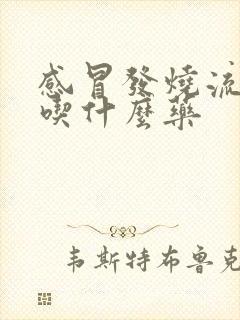 感冒發燒流
喫什麼藥
韦斯特布鲁克